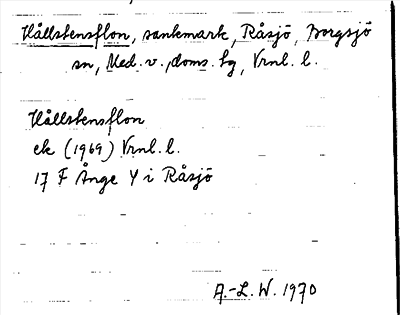 Hållstensflon, sankmark, Råsjö, Borgsjö
sn, Med. v., doms. tg, Vrnl. l.
Hållstensflon
ek (1969) Vrnl. l.
17 F Ånge Y i Råsjö
A.-L. W. 1970